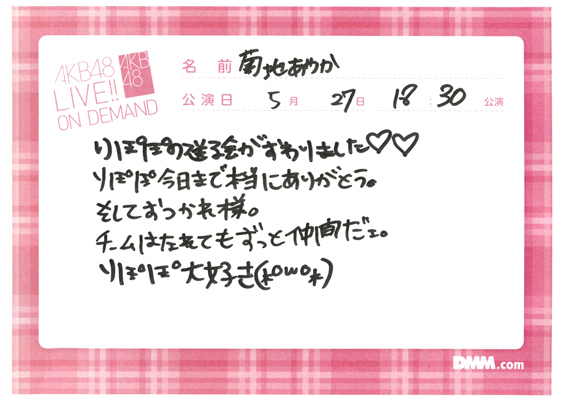 AKB48
LIVE!!
ON DEMAND
AKB
48
名 前 菊地あやか
公演日 5月 27日 18:30 公演
りぽぽの送る会がおわりました♡♡
りぽぽ今日まで本当にありがとう。
そしておつかれ様。
チームはなれてもずっと仲間だェ。
りぽぽ大好き(*°ω°*)
DMM.com